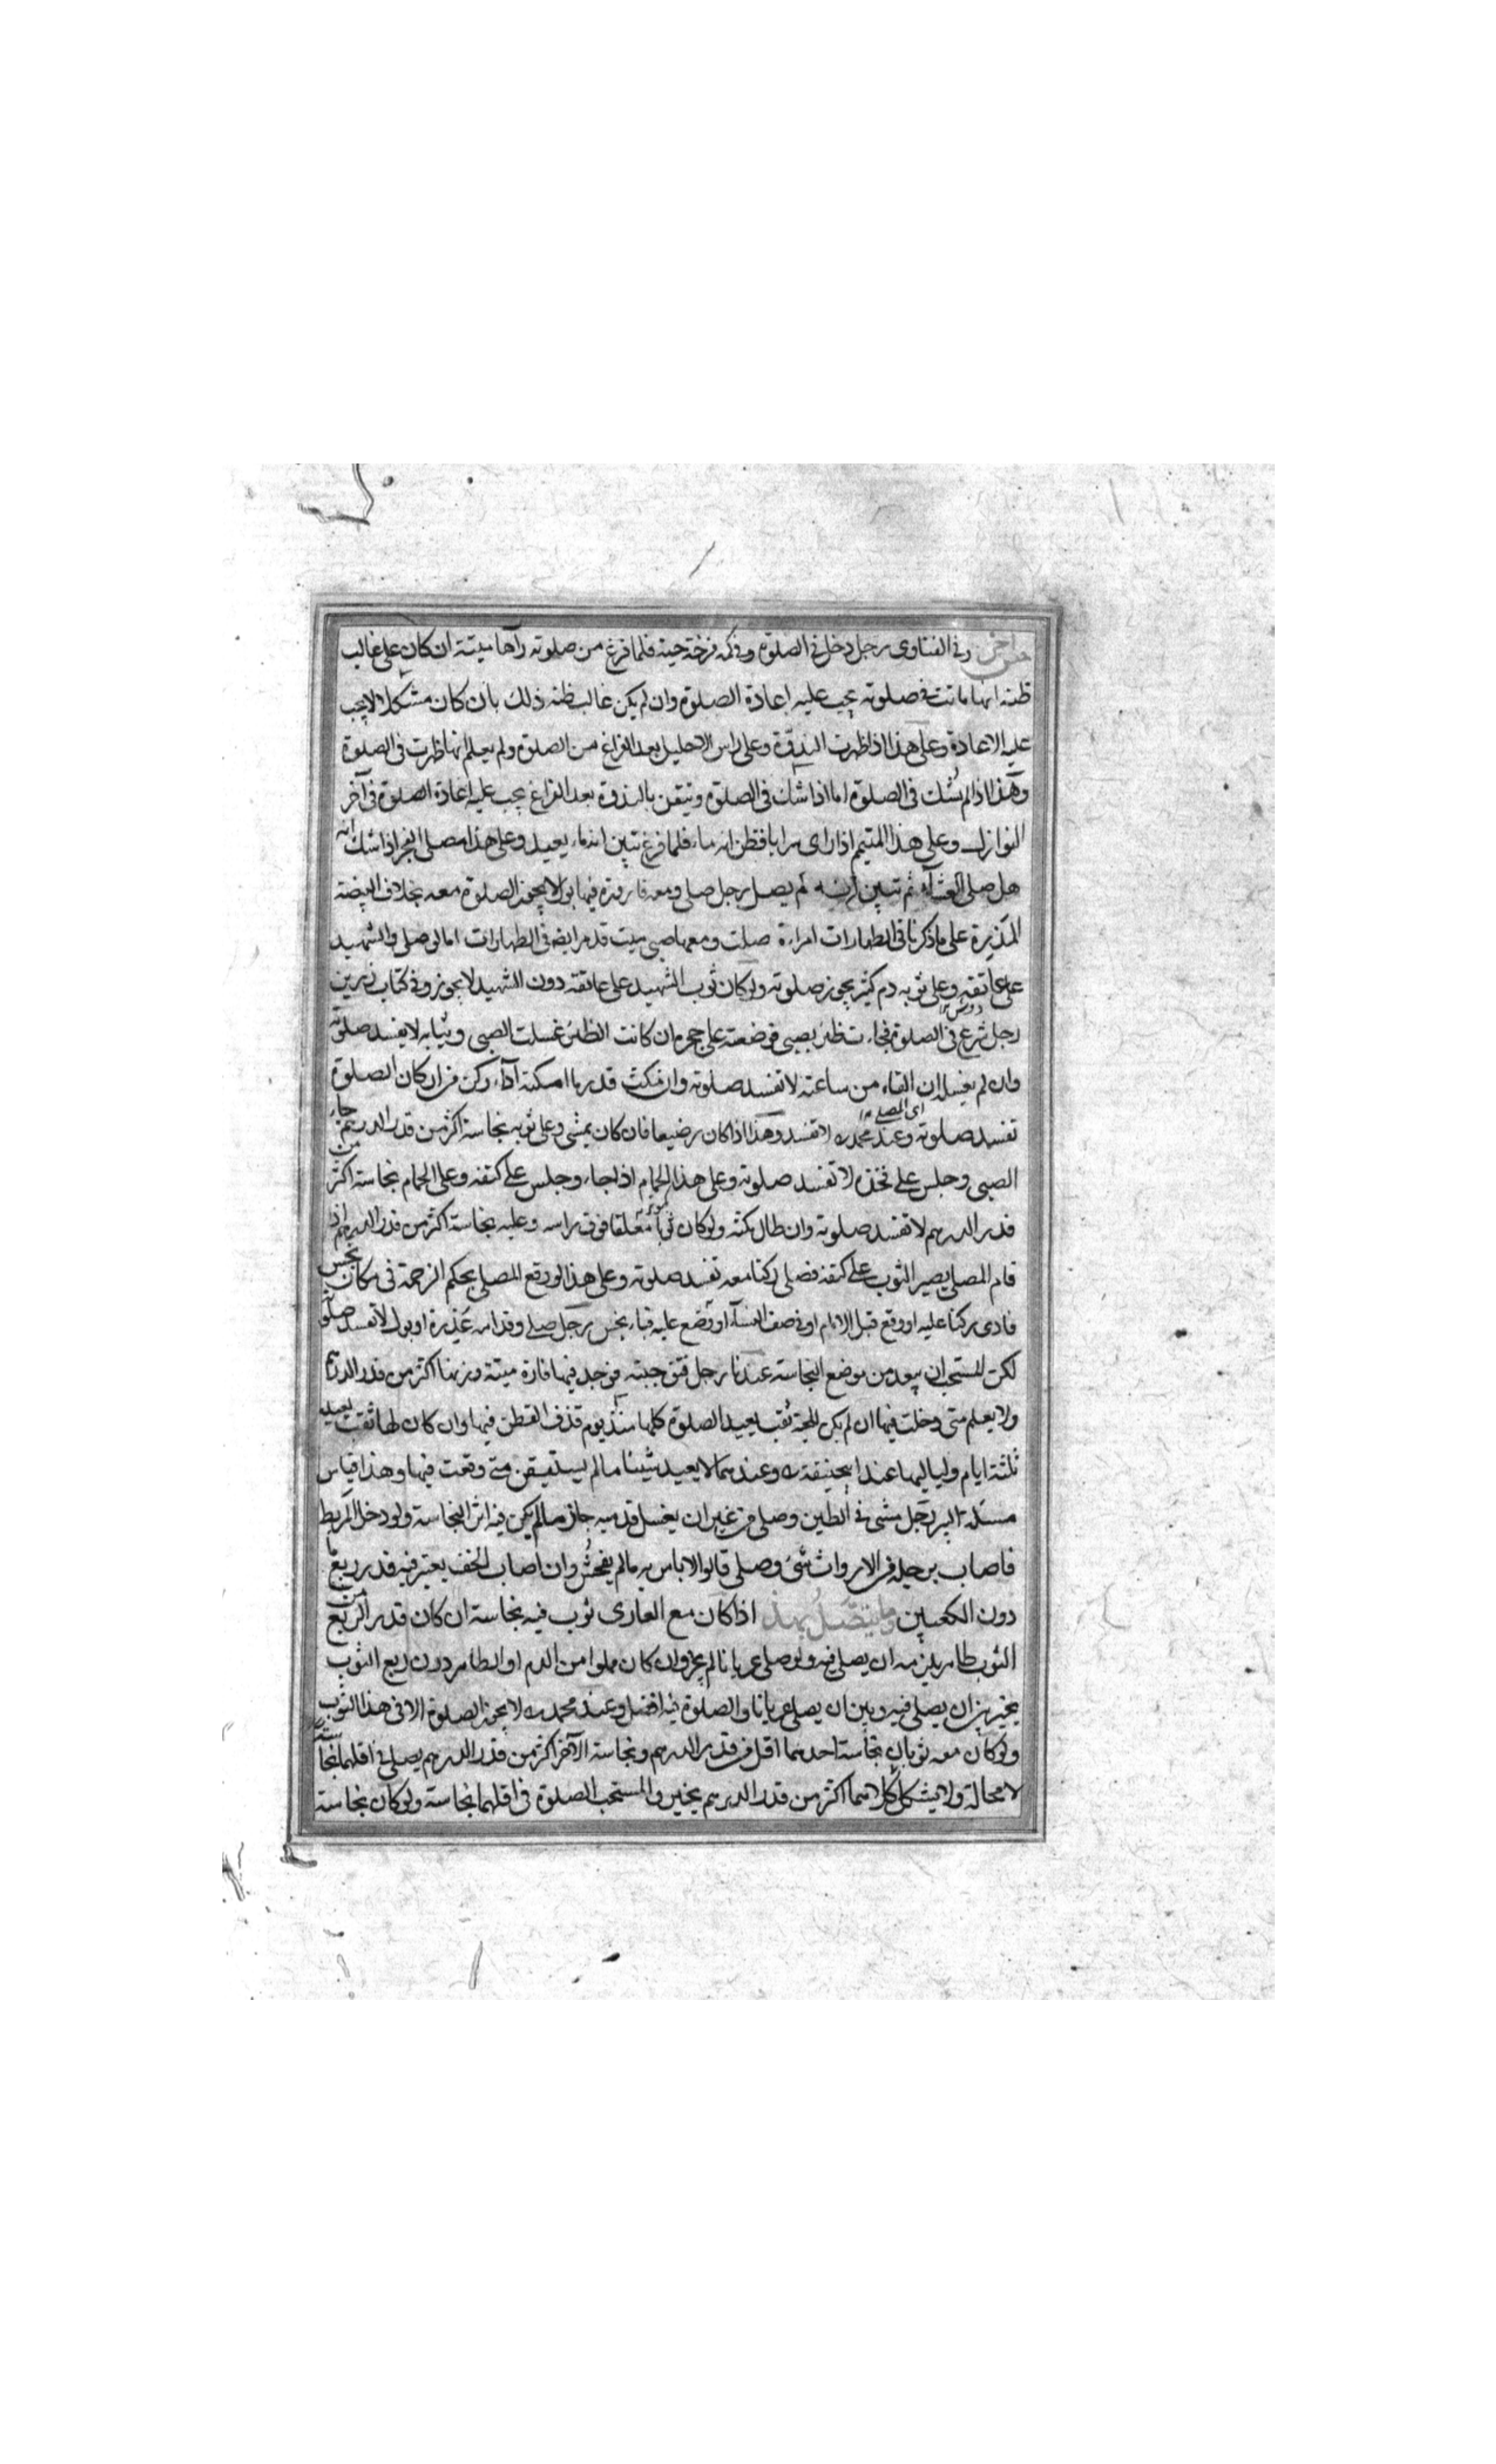 وفى الفتاوى رجل دخل فى الصلوة وفى كمه فرخة حية فلما فرغ من صلوته رآها ميتة ان كان على غالب
ظنه انها ماتت فى صلوته يجب عليه اعادة الصلوة وان لم يكن غالب ظنه ذلك بان كان مشكلا لايجب
عليه الاعادة وعلى هذا اذا ظهرت البذوة وعلى راس الاحليل بعد الفراغ من الصلوة ولم يعلم انها ظهرت فى الصلوة
وهذا اذا لم يشك فى الصلوة اما اذا شك فى الصلوة وتيقن بالبذوة بعد الفراغ يجب عليه اعادة الصلوة فى آخر
النوازل وعلى هذا المتيمم اذا راى سرابا فظن انه ماء فلما فرغ تبين انه ماء يعيد وعلى هذا مصلى الفجر اذا شك انه
هل صلى العشآء ثم تبين انه لم يصل رجل صلى ومعه قارورة فيها بول لايجوز الصلوة معه بخلاف البيضة
المذيرة على ما ذكرنا فى الطهارات امراءة صلت ومعها صبى ميت قد مر ايضا فى الطهارات اما لو صلى والشهيد
على عاتقه وعلى ثوبه دم كثير يجوز صلوته ولو كان ثوب الشهيد على عاتقه دون الشهيد لايجوز وفى كتاب رزين
رجل شرع فى الصلوة فجاءت ظئر بصبى فوضعته على حجره ان كانت الظئر غسلت الصبى وثيابه لا يفسد صلوته
وان لم يغسل ان القاه من ساعته لا تفسد صلوته وان مكث قدر ما امكنه آداء ركن من اركان الصلوة
اى المصلى ١٢
تفسد صلوته وعند محمد لا تفسد وهذا اذا كان رضيعا فان كان يمشى وعلى ثوبه نجاسة اكثر من قدر الدرهم جاء
الصبى وجلس على فخذه لا تفسد صلوته وعلى هذا الحمام اذا جاء وجلس على كتفه وعلى الحمام نجاسة اكثر من
قدر الدرهم لا تفسد صلوته وان طال مكثه ولو كان ثوبا معلقا فوق راسه وعليه نجاسة اكثر من قدر الدرهم اذا
قام المصلى يصير الثوب على كتفه فصلى ركنا معه تفسد صلوته وعلى هذا لو وقع المصلى بحكم الزحمة فى مكان نجس
فادى ركنا عليه او وقع قبل الامام او فى صف النسآء او وضع عليه قباء نجس رجل صلى وقدامه عذيرة او بول لا تفسد صلوته
لكن المستحب ان يبعد من موضع النجاسة عندنا رجل فتق جبته فوجد فيها فارة ميتة وزنها اكثر من قدر الدرهم
ولا يعلم متى دخلت فيها ان لم يكن للجبة ثقب يعيد الصلوة كلها منذ يوم قذف القطن فيها وان كان لها ثقب يعيد
ثلثة ايام ولياليها عند ابيحنيفة وعندهما لا يعيد شيئا ما لم يستيقن متى وقعت فيها وهذا قياس
مسئلة البير رجل مشى فى الطين وصلى من غير ان يغسل قدميه جاز ما لم يكن فيه اثر النجاسة ولو دخل المربط
فاصاب رجله من الارواث شئ وصلى قالوا لاباس به ما لم يفحش وان اصاب الخف يعتبر فيه قدر ربع ما
دون الكعبين وما يتصل بهذا اذا كان مع العارى ثوب فيه نجاسة ان كان قدر الربع من
الثوب طاهر يلزمه ان يصلى فيه ولو صلى عريانا لم يجز وان كان مملوا من الدم او الطاهر دون ربع الثوب
يخير بين ان يصلى فيه وبين ان يصلى عريانا والصلوة فيه افضل وعند محمد لا يجوز الصلوة الا فى هذا الثوب
ولو كان معه ثوبان نجاسة احدهما اقل من قدر الدرهم ونجاسة الآخر اكثر من قدر الدرهم يصلى فى اقلهما نجاسة
لا محالة ولا يشكل كلاهما اكثر من قدر الدرهم يخير والمستحب الصلوة فى اقلهما نجاسة ولو كان نجاسة